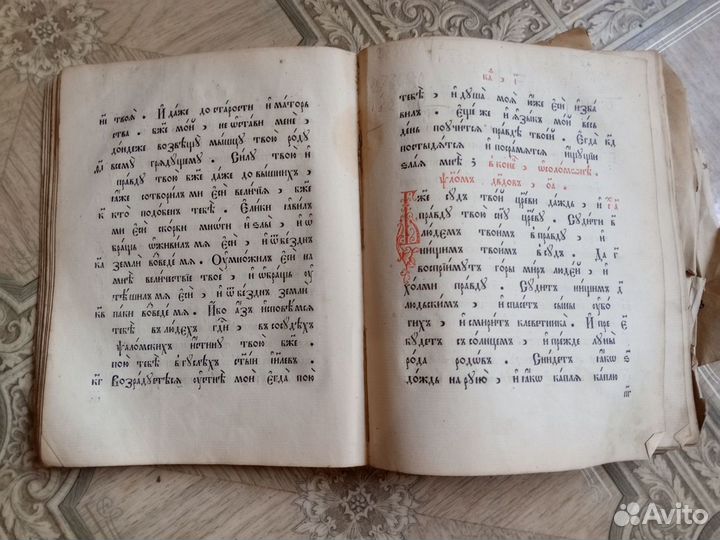 н҃і твоѧ̀ . И҆ да́же до ста́рости и҆ мато́рь
ства . бж҃е мо́й , не ѡ҆ста́ви менѐ ,
до́ндеже возвѣщꙋ̀ мы́шцꙋ твою̀ ро́дꙋ
л҃ѳ всемꙋ̀ грѧдꙋ́щемꙋ . Си́лꙋ твою̀ и҆
пра́вдꙋ твою̀ бж҃е да́же до вы́шнихъ ,
ꙗ҆́же сотвори́лъ мѝ є҆сѝ вели́чїѧ , бж҃е
к҃ кто̀ подо́бенъ тебѣ̀ . Є҆ли́ки ꙗ҆ви́лъ
мѝ є҆сѝ ско́рби мно́ги и҆ ѕлы̀ , и҆ ѡ҆
бра́щьсѧ ѡ҆живи́лъ мѧ̀ є҆сѝ , и҆ ѿ бе́зднъ
к҃а землѝ возведе́ мѧ . Оу҆мно́жилъ є҆сѝ на
мнѣ̀ вели́чествїе твоѐ , и҆ ѡ҆бра́щьсѧ оу҆
тѣ́шилъ мѧ̀ є҆сѝ , и҆ ѿ бе́зднъ землѝ
к҃в па́ки возведе́ мѧ . И҆́бо а҆́зъ и҆сповѣ́мсѧ
тебѣ̀ в лю́дехъ гд҇и , в сосꙋ́дѣхъ
ѱало́мскихъ и҆́стинꙋ твою̀ бж҃е .
пою̀ тебѣ̀ в гꙋ́слехъ ст҃ы́й і҆и҃левъ .
к҃г Возра́дꙋетесѧ оу҆стнѣ̀ моѝ є҆гда̀ пою̀
к҃а , ı҃
тебѣ̀ , и҆ дꙋша̀ моѧ̀ ю҆́же є҆сѝ и҆зба
вилъ . Є҆ще́ же и҆ ꙗ҆зы́къ мо́й ве́сь
де́нь поꙋчи́тсѧ пра́вдѣ твое́й . Є҆гда̀ к҃д
постыдѧ́тсѧ и҆ посра́мѧтсѧ и҆́щꙋщїи
ѕла́ѧ мнѣ̀ . в коне́цъ , ѡ҆ соломо́нѣ ,
ѱало́мъ дв҃довъ , о҃а .
Бж҃е сꙋ́дъ тво́й цр҃ви да́ждь , и҆
пра́вдꙋ твою̀ сн҃ꙋ цр҃вꙋ . Сꙋди́ти в҃
лю́демъ твои́мъ в пра́вдꙋ , и҆
ни́щимъ твои́мъ в сꙋ́дъ . Да г҃
воспрїи́мꙋтъ го́ры ми́ръ лю́демъ , и҆
хо́лми пра́вдꙋ . Сꙋ́дитъ ни́щимъ д҃
лю́дьскимъ , и҆ сп҃се́тъ сы́ны ᲂу҆бо́
гихъ , и҆ смири́тъ клеветника̀ . И҆ пре є҃
бꙋ́детъ съ со́лнцемъ , и҆ пре́жде лꙋны̀
ро́да родѡ́въ . Сни́детъ ꙗ҆́кѡ ѕ҃
до́ждь на рꙋно̀ , и҆ ꙗ҆́кѡ ка́плѧ ка́плю
Avito